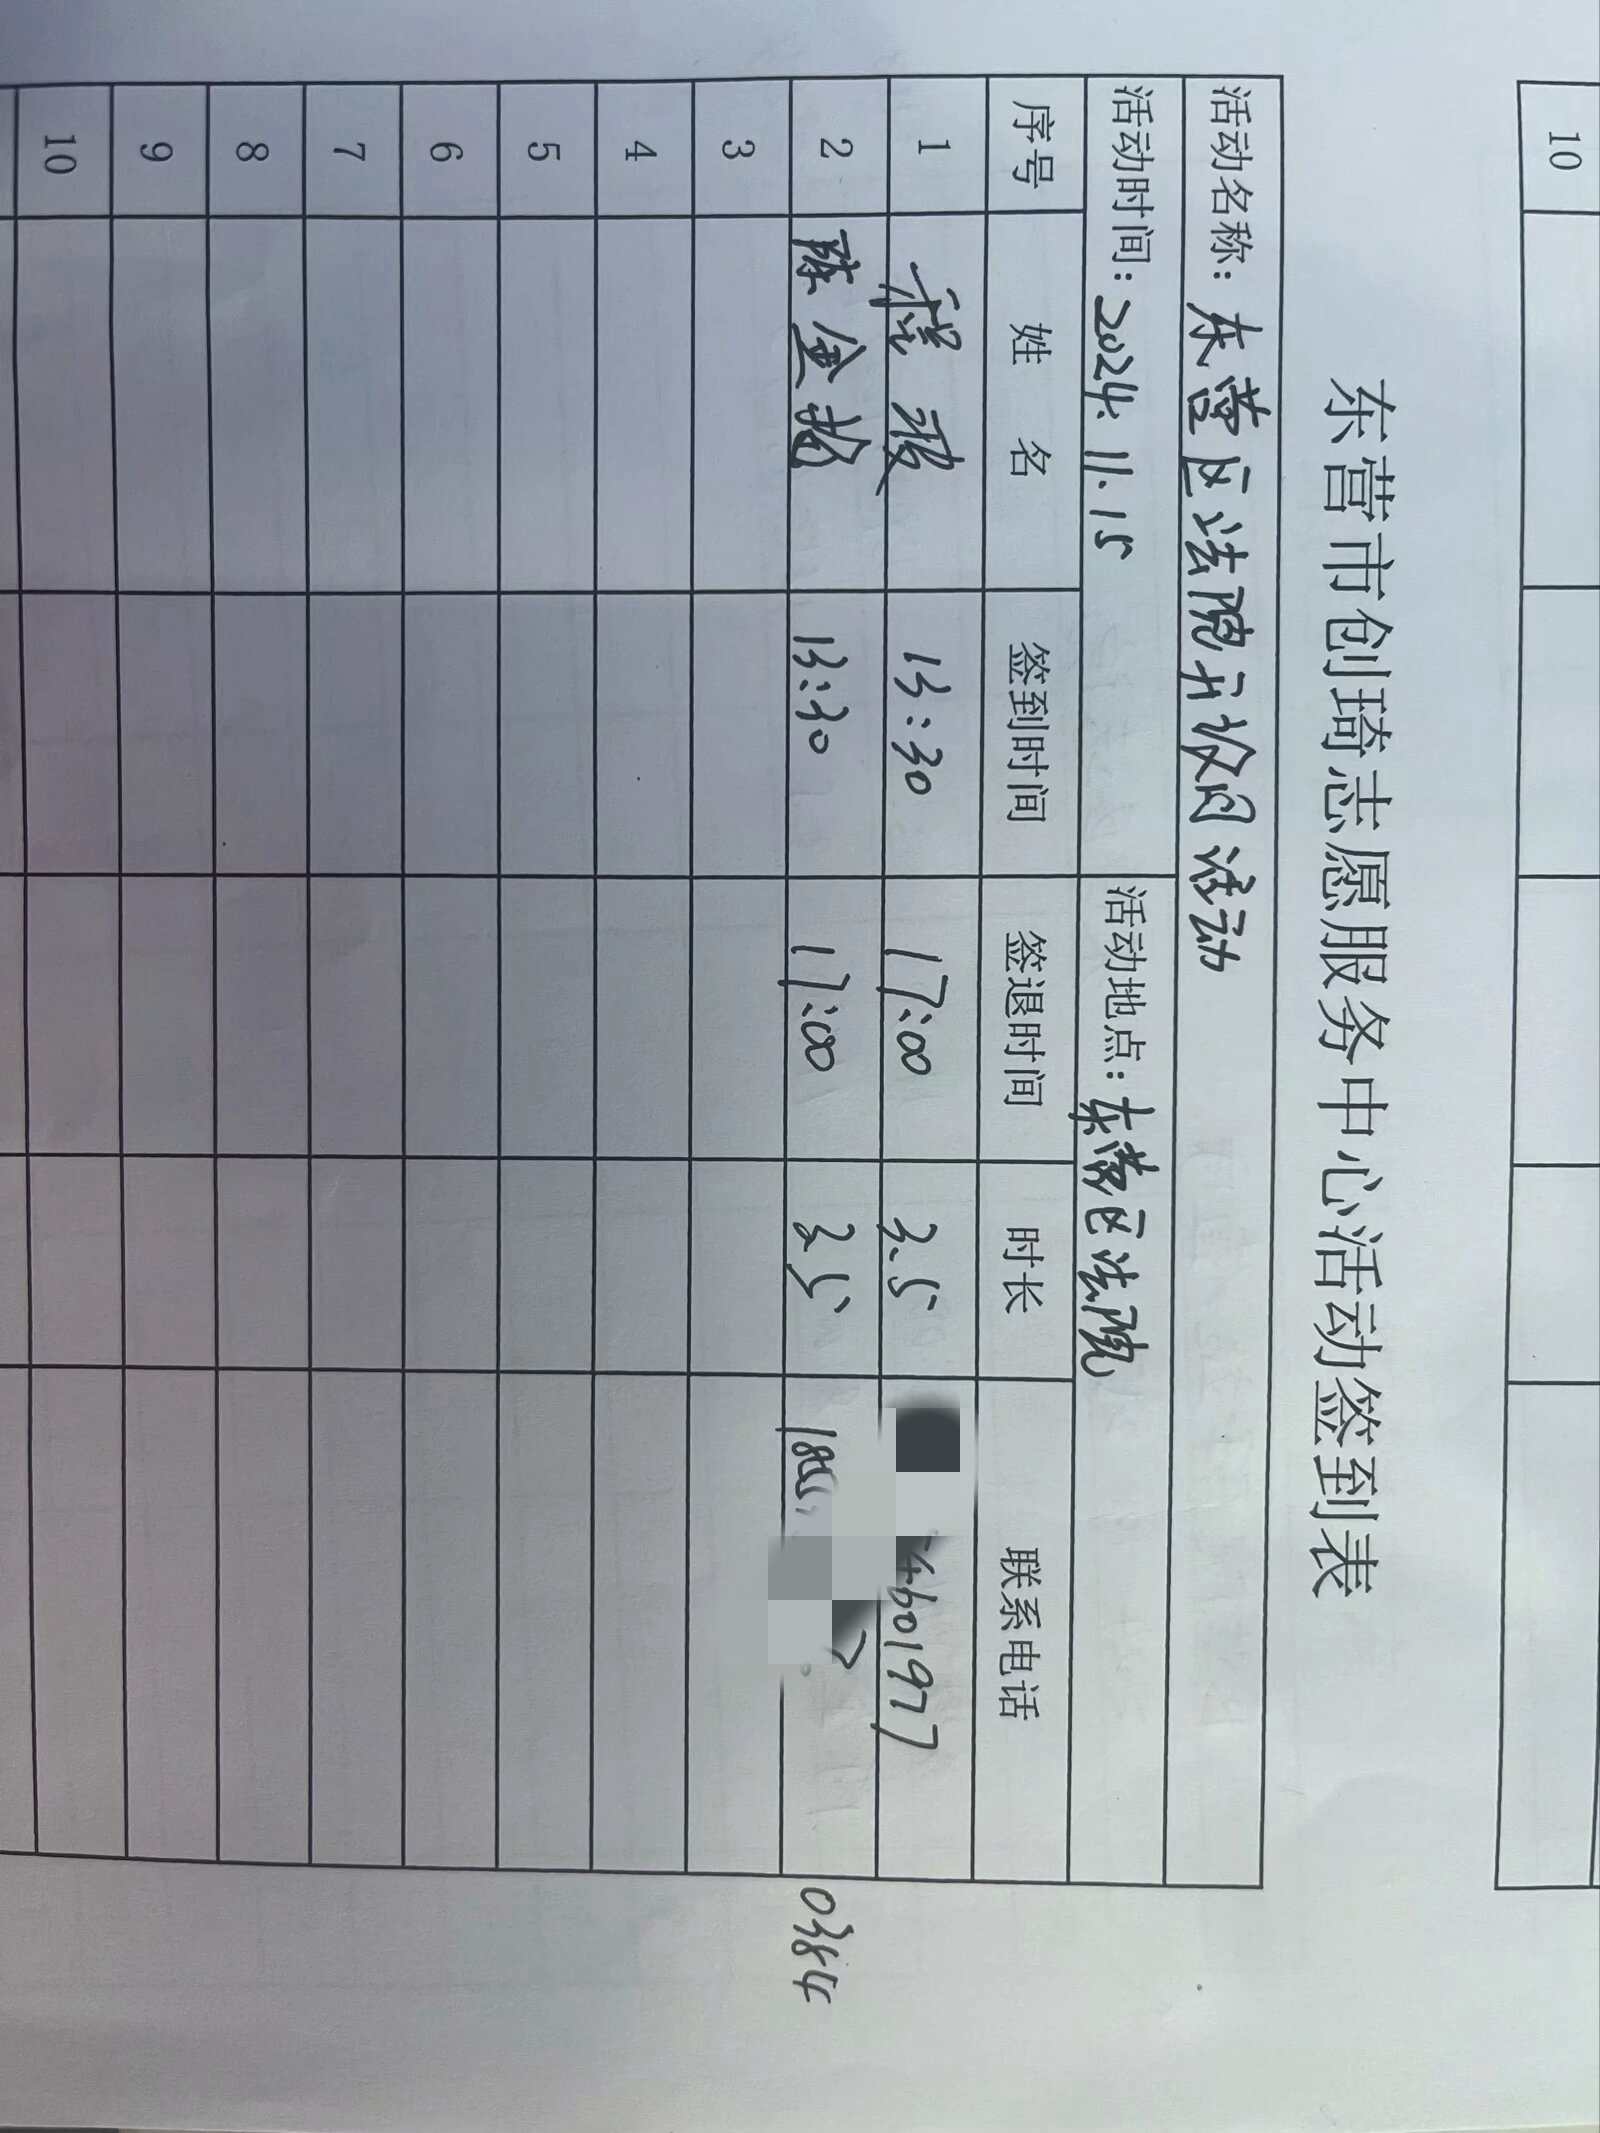 10
东营市创琦志愿服务中心活动签到表
活动名称：东营区法院开放日活动
活动时间：2024.11.15 活动地点：东营区法院
序号 姓 名 签到时间 签退时间 时长 联系电话
1 程波 13:30 17:00 3.5 4601977
2 陈金 13:30 17:00 3.5 0384
3
4
5
6
7
8
9
10